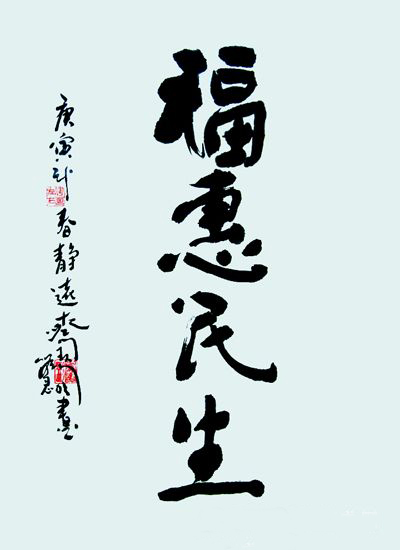 福惠民生
庚寅年春静远斋
书